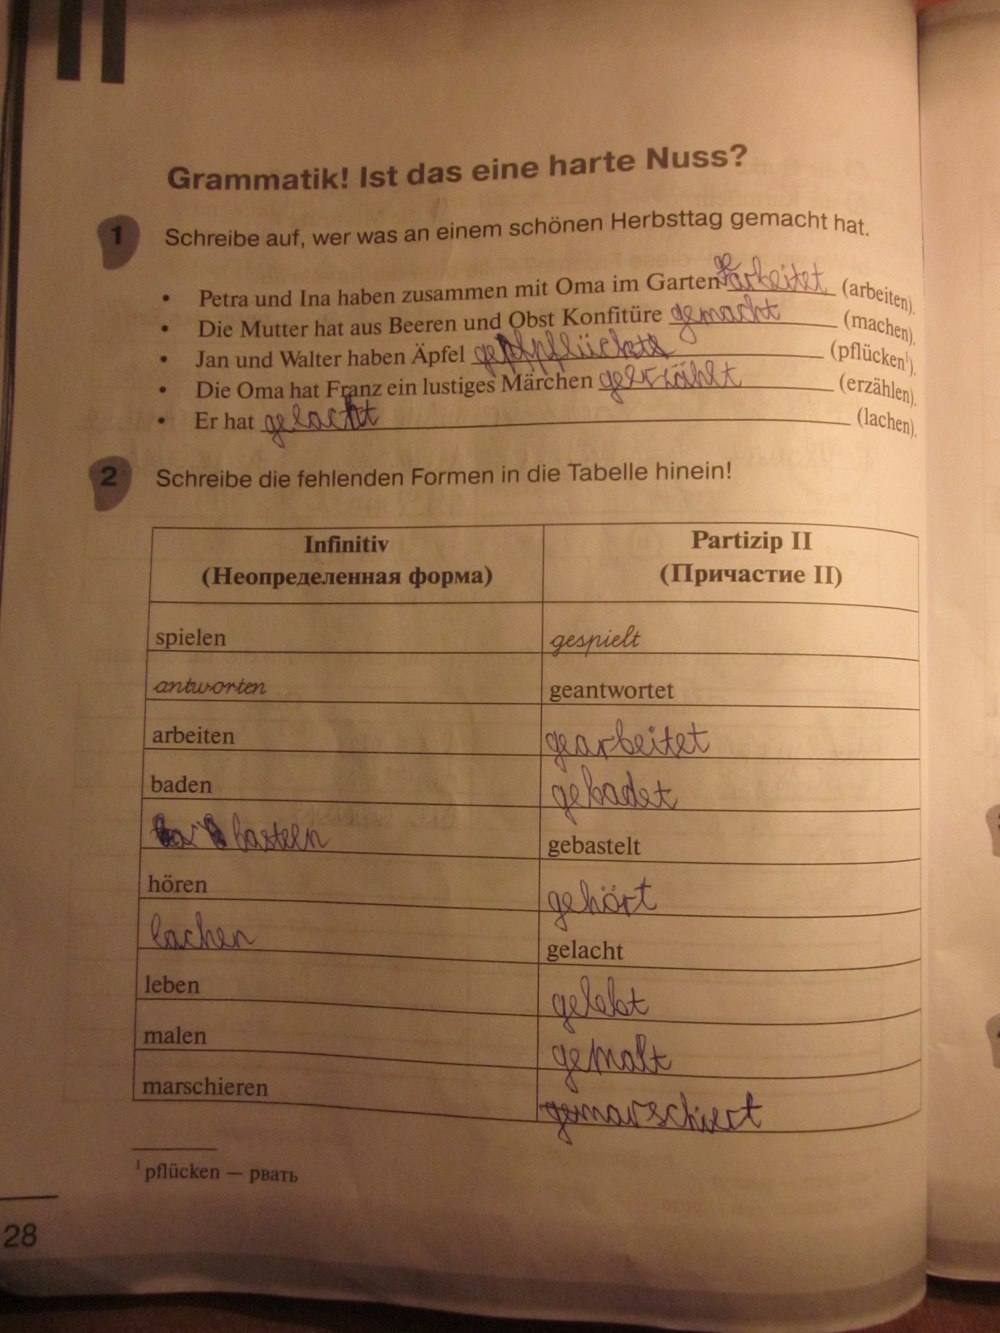 Grammatik! Ist das eine harte Nuss?
1 Schreibe auf, wer was an einem schönen Herbsttag gemacht hat.
• Petra und Ina haben zusammen mit Oma im Garten gearbeitet (arbeiten).
• Die Mutter hat aus Beeren und Obst Konfitüre gemacht (machen).
• Jan und Walter haben Äpfel (pflücken¹).
• Die Oma hat Franz ein lustiges Märchen geerzählt (erzählen).
• Er hat gelacht (lachen).
2 Schreibe die fehlenden Formen in die Tabelle hinein!
Infinitiv Partizip II
(Неопределенная форма) (Причастие II)
spielen gespielt
antworten geantwortet
arbeiten gearbeitet
baden gebadet
basteln gebastelt
hören gehört
lachen gelacht
leben gelebt
malen gemalt
marschieren gemarschiert
¹ pflücken — рвать
28